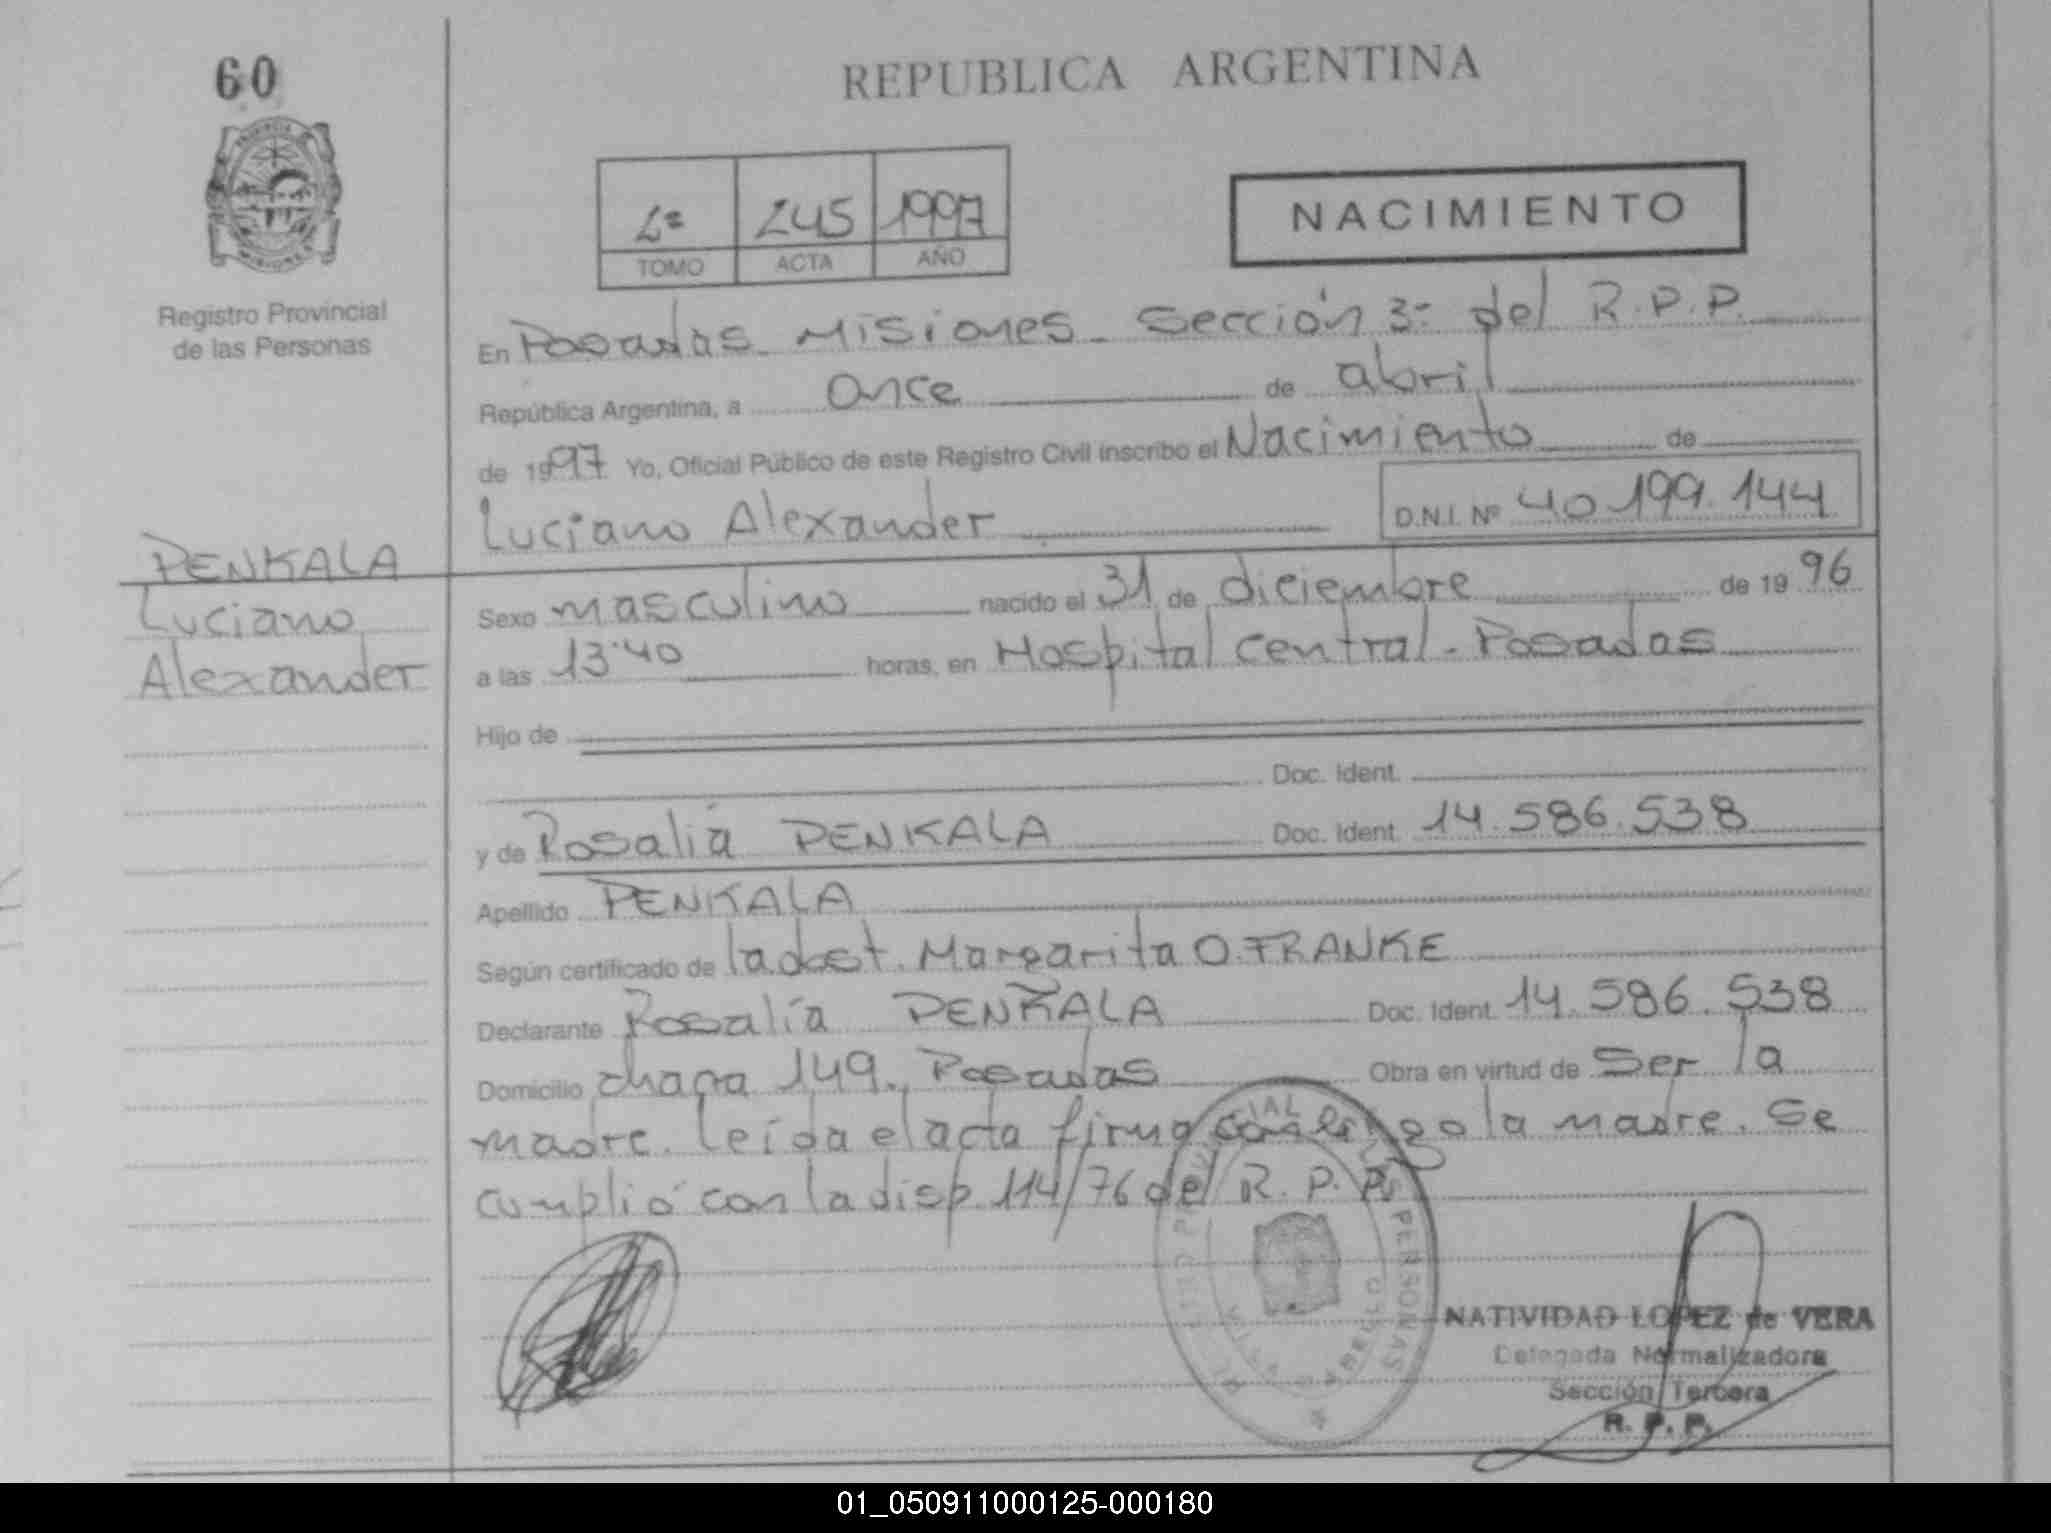 60
REPUBLICA ARGENTINA
2º 245 1997
TOMO ACTA AÑO
NACIMIENTO
Registro Provincial
de las Personas
En Posadas Misiones Sección 3º del R.P.P.
República Argentina, a once de abril
de 1997 Yo, Oficial Público de este Registro Civil inscribo el Nacimiento de
Luciano Alexander D.N.I. Nº 40.199.144
PENKALA
Luciano
Alexander
Sexo masculino nacido el 31 de diciembre de 1996
a las 13:40 horas, en Hospital central - Posadas
Hijo de
Doc. Ident.
y de Rosalia PENKALA Doc. Ident. 14.586.538
Apellido PENKALA
Según certificado de la obst. Margarita O. FRANKE
Declarante Rosalía PENKALA Doc. Ident. 14.586.538
Domicilio chacra 149. Posadas Obra en virtud de ser la
madre. Leída el acta firma conmigo la madre. Se
cumplió con la disp. 114/76 del R.P.P.
NATIVIDAD LOPEZ de VERA
Delegada Normalizadora
Sección Tercera
R. P. P.
01_050911000125-000180